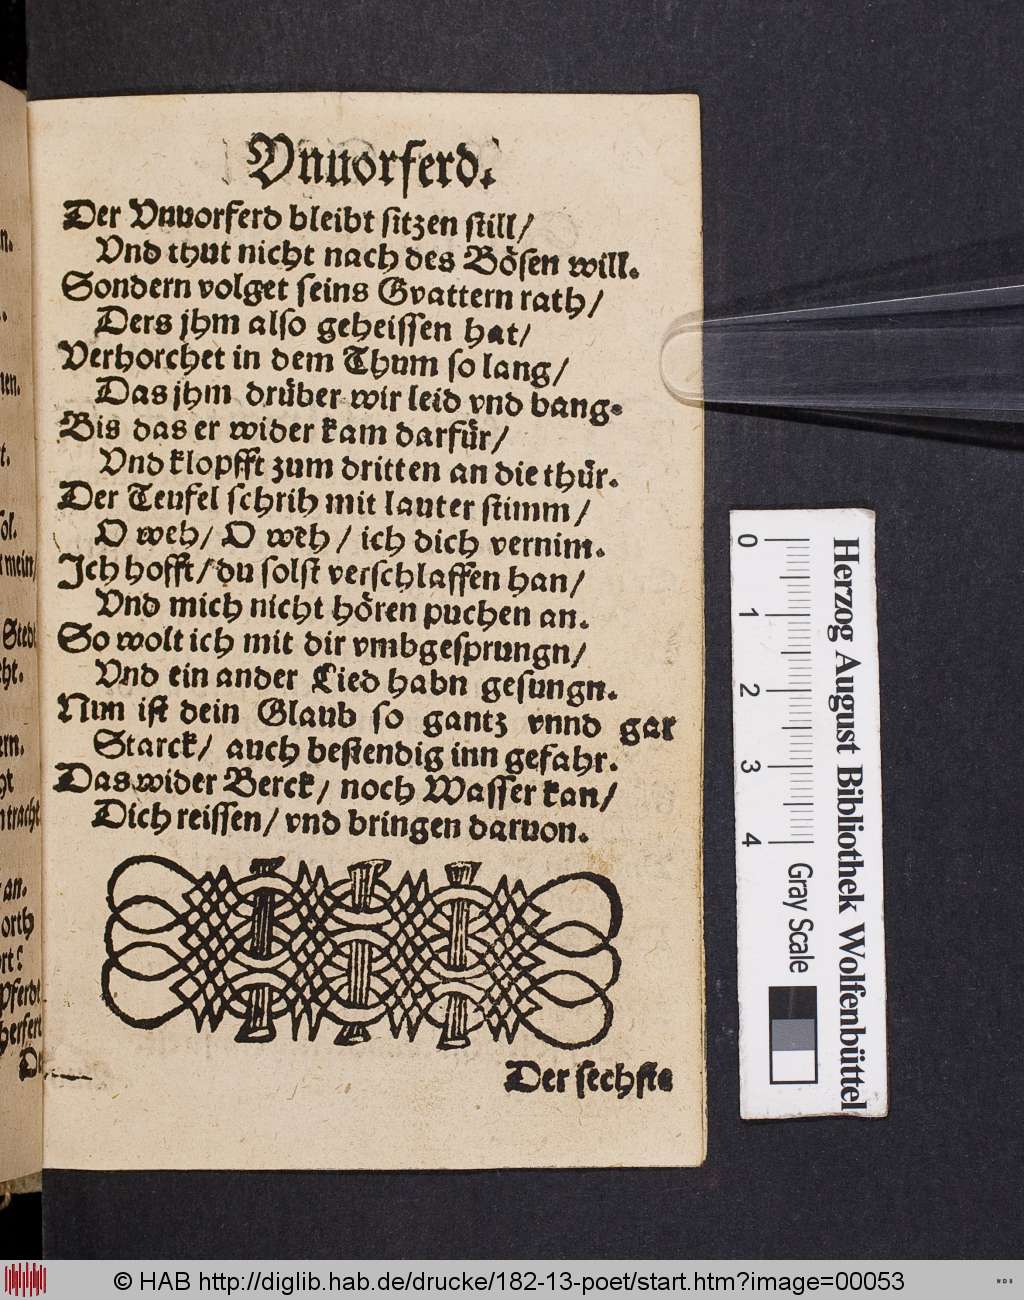 Vnuorferd.
Der Vnuorferd bleibt sitzen still/
Vnd thut nicht nach des Bösen will.
Sondern volget seins Gvattern rath/
Ders jhm also geheissen hat/
Verhorchet in dem Thum so lang/
Das jhm drüber wir leid vnd bang.
Bis das er wider kam darfür/
Vnd klopfft zum dritten an die thür.
Der Teufel schrih mit lauter stimm/
O weh/ O weh/ ich dich vernim.
Ich hofft/ du solst verschlaffen han/
Vnd mich nicht hören puchen an.
So wolt ich mit dir vmbgesprungn/
Vnd ein ander Lied habn gesungn.
Nun ist dein Glaub so gantz vnnd gar
Starck/ auch bestendig inn gefahr.
Das wider Berck/ noch Wasser kan/
Dich reissen/ vnd bringen daruon.
Der sechste
n.
nen.
t.
sol.
mein/
Sted
cht.
ern.
cht
ntracht
an.
orth
ort?
Pferdt
herfert
De
0 1 2 3 4
Herzog August Bibliothek Wolfenbüttel
Gray Scale
© HAB http://diglib.hab.de/drucke/182-13-poet/start.htm?image=00053
WDB